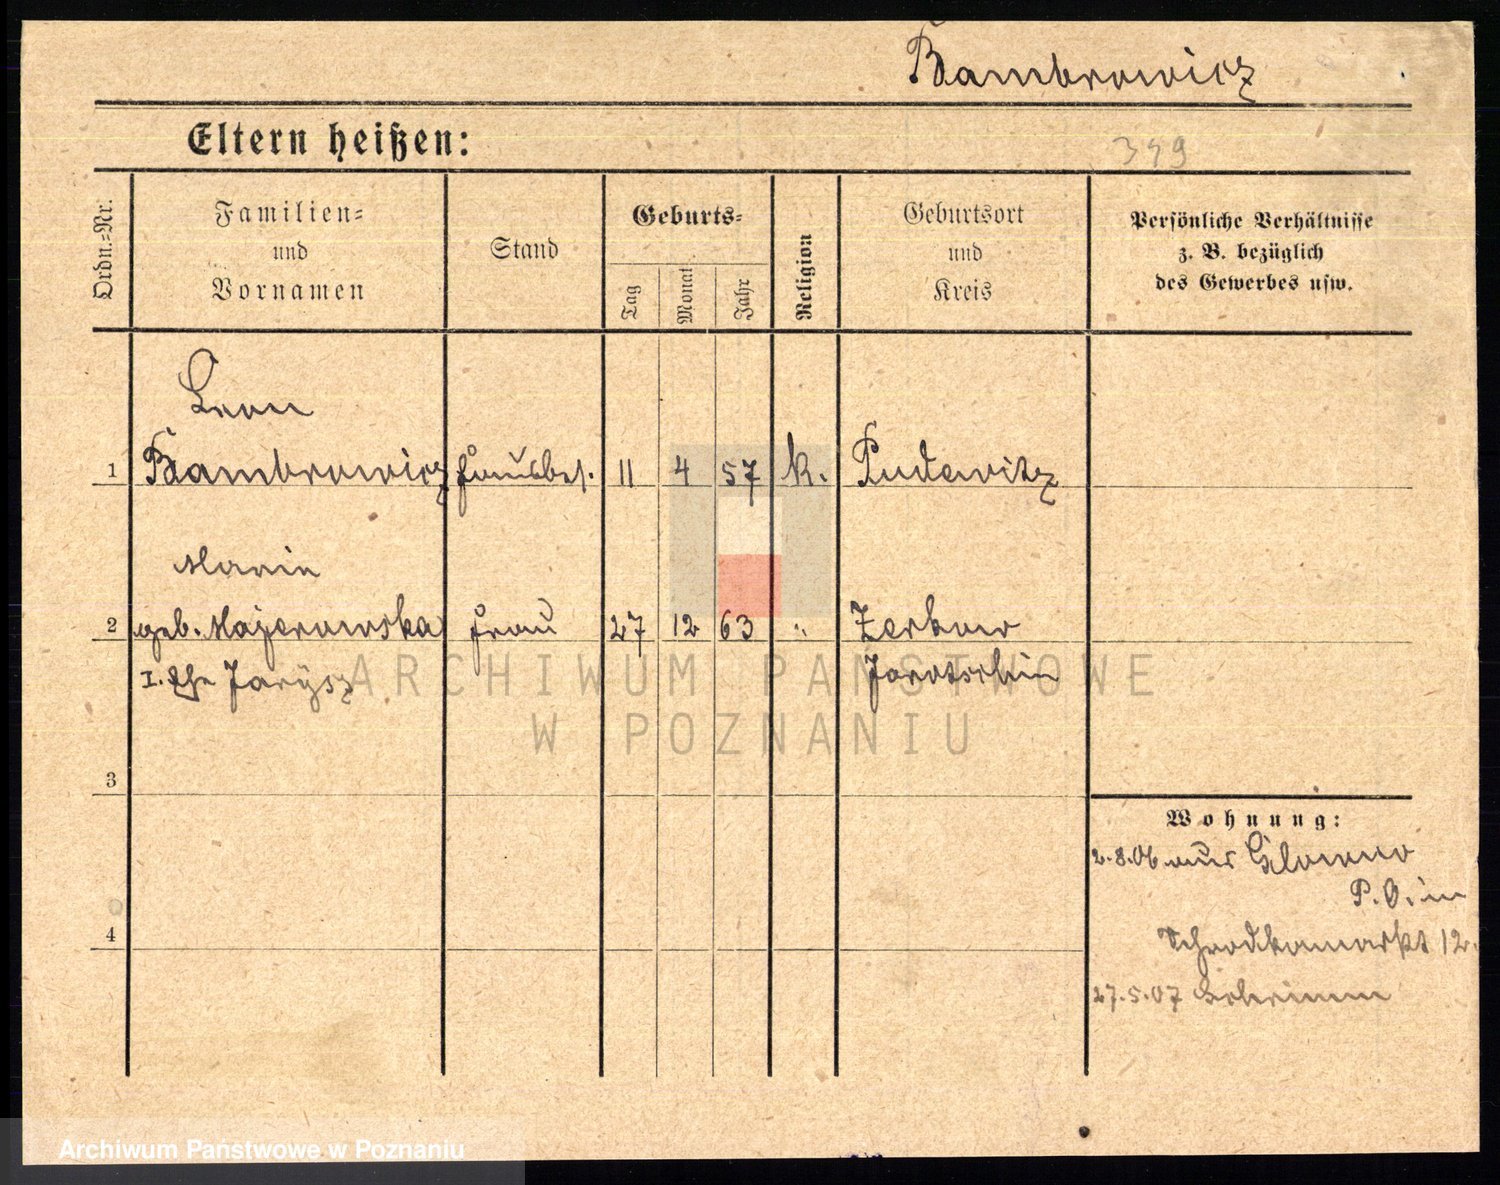 Bambrowicz
Eltern heißen:
349
Ordn.-Nr.
Familien-
und
Vornamen
Stand
Geburts-
Tag
Monat
Jahr
Religion
Geburtsort
und
Kreis
Persönliche Verhältnisse
z. B. bezüglich
des Gewerbes usw.
Leon
1 Bambrowicz Hausbes. 11 4 57 k. Pudewitz
Marie
2 geb. Majerowska Frau 27 12 63 " Zerkow
I. Ehe Jarysz Jarotschin
ARCHIWUM PAŃSTWOWE
W POZNANIU
3
Wohnung:
2.8.06 aus Glowno
P.O. in
Schrodkamarkt 12.
4
27.5.07
Archiwum Państwowe w Poznaniu